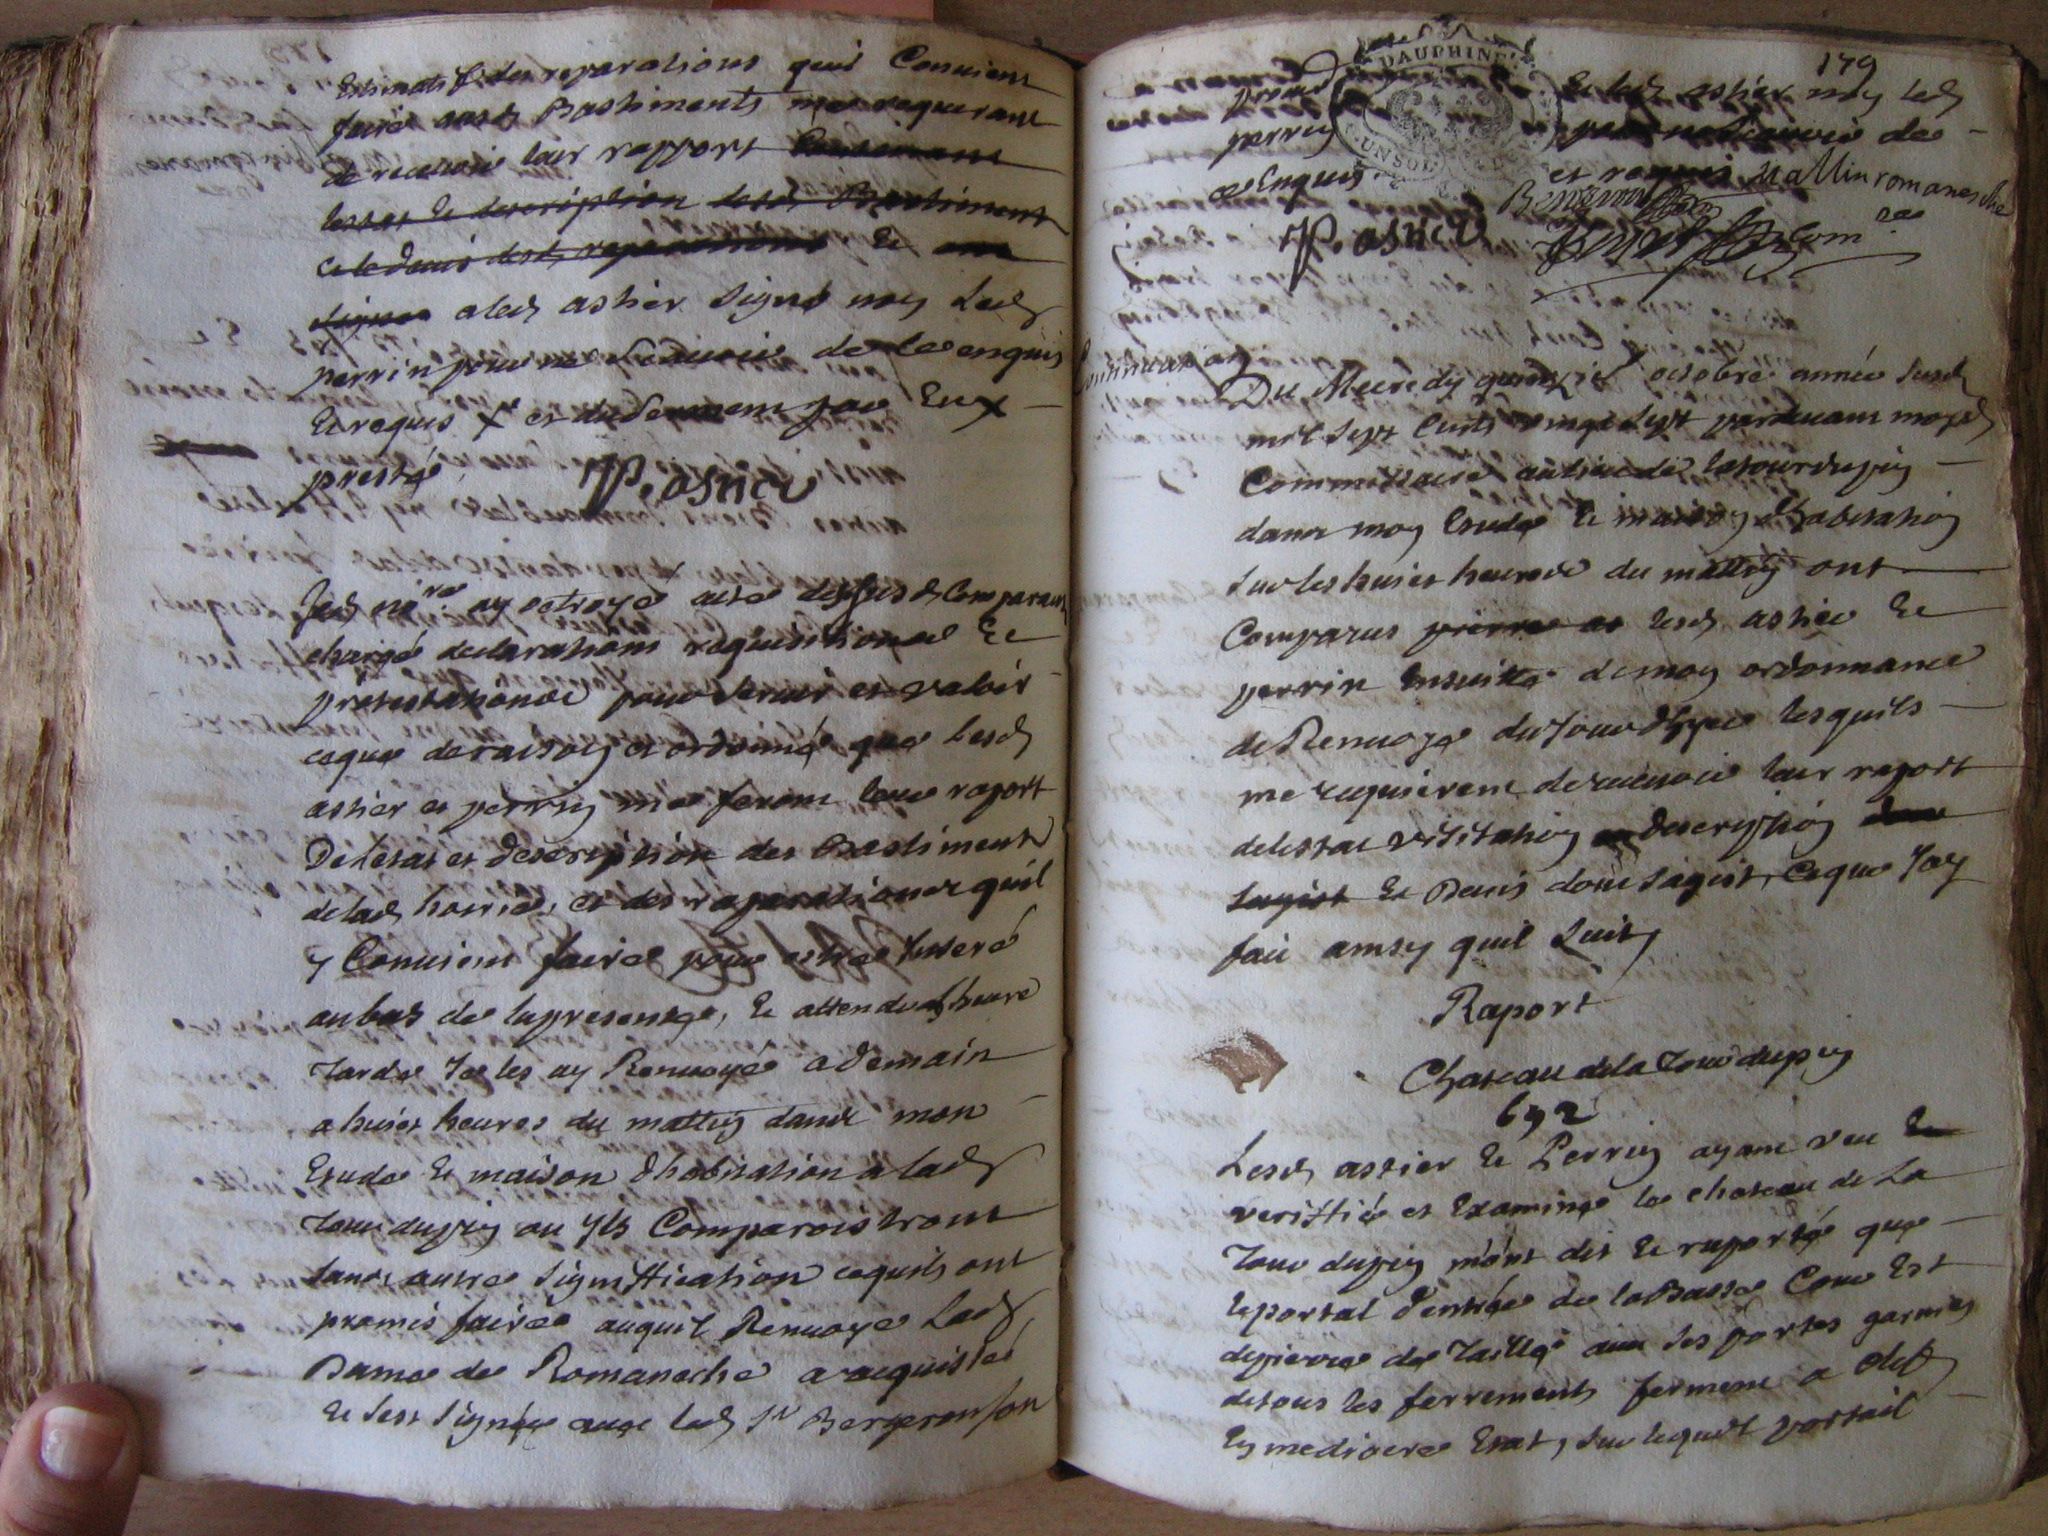 Estimatif des reparations quil Convient
faire ausd Bastiments me requerant
de recevoir leur rapport
lestat et description desd Bastiment
et le devis desd reparations Et
signer a led astier signé non Led
perrin pour ne scavoir de ce enquis
Et requis et du serment par Eux
presté
P. astier
Jed no.re ay octroyé acte desusd Comparant
chargé declarations requisitions Et
protestations pour servir et valoir
ceque de raison et ordonné que lesd
astier et perrin me feront leur raport
De lestat et description des Bastiments
de lad hoirie, et des reparations quil
y Convient faire pour estre Inseré
au bas de la presente, Et attendu lheure
tarde Je les ay Renvoyé a demain
a huict heures du mattin dans mon
Etude Et maison dhabitation a lad
Tour dupin ou Ils Comparoistront
sans autre signiffication cequils ont
promis faire auquel Renvoye Lad
Dame de Romaneche a acquiscé
Et sest signée avec led Sr Bergeron son
DAUPHINÉ
UN SOL
179
procureur
perrin
de Enquis
Et led astier non led
pour ne scavoir de
et requis Vallin romanesche
P. astier
Com.re
Continuation
Du Mecredy quinzie octobre année susd
mil sept Cents vingt sept pardevant moyd
Commissaire au lieu de Latourdupin
dans moy Etude Et maison d'habitation
sur les huict heures du mattin ont
Comparus pierre as lesd astier Et
perrin Ensuitte de moy ordonnance
de Renvoye du Jour dhyer lesquils
me requierent de recevoir leur raport
de lestat visitation description
sagist Et Devis dont sagist, Ceque Jay
fait ainsy quil suit
Raport
Chateau de la Tour dupin
692
Lesd astier Et Perrin ayant veu Et
veriffié et Examiné le chateau de La
Tour dupin mont dit Et raporté que
le portal d'entrée de la Basse Cour Est
de pierre de Taille avec ses portes garnies
de tous les ferrements fermant a clef
En mediocre Etat, sur lequel portail